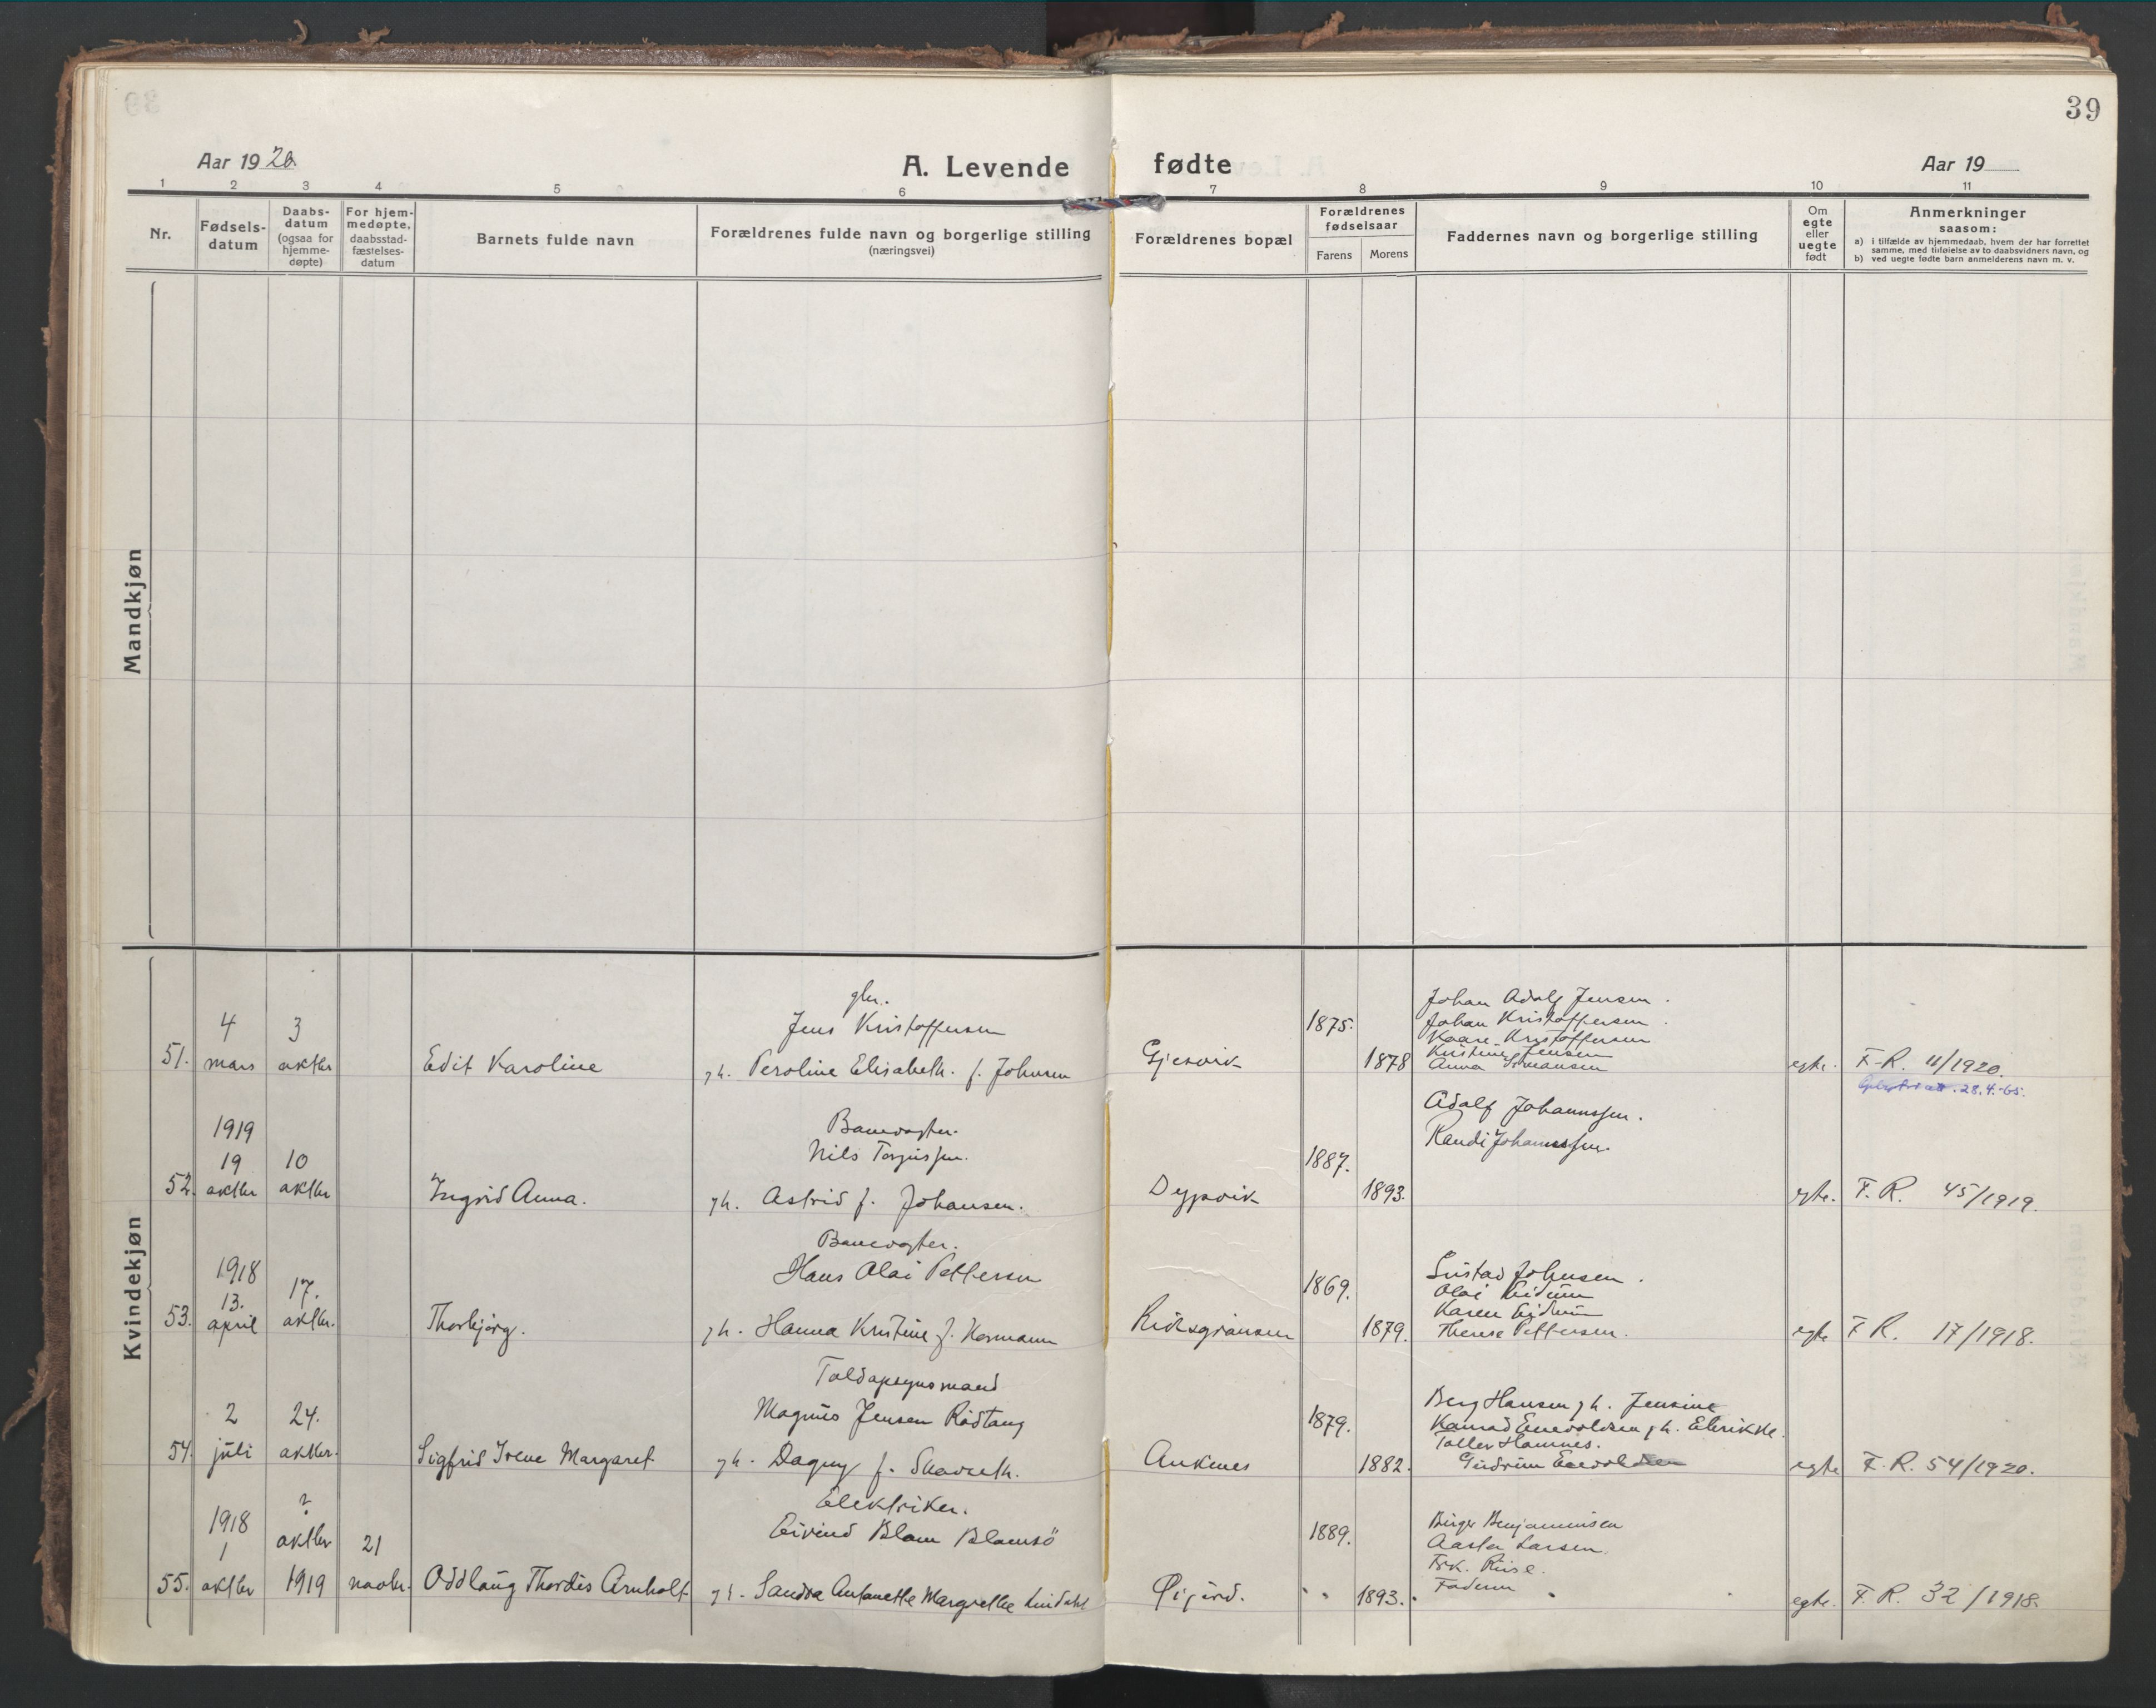 39
Aar 1920.
A. Levende fødte
Aar 19
1 2 3 4 5 6 7 8 9 10 11
Nr.
Fødsels-
datum
Daabs-
datum
(ogsaa for
hjemme-
døpte)
For hjem-
medøpte,
daabsstad-
fæstelses-
datum
Barnets fulde navn
Forældrenes fulde navn og borgerlige stilling
(næringsvei)
Forældrenes bopæl
Forældrenes
fødselsaar
Farens Morens
Faddernes navn og borgerlige stilling
Om
egte
eller
uegte
født
Anmerkninger
saasom:
a) i tilfælde av hjemmedaab, hvem der har forrettet
samme, med tilføielse av to daabsvidners navn, og
b) ved uegte fødte barn anmelderens navn m. v.
Mandkjøn
Kvindekjøn
51.
4
mars
3
aktbr
Edit Karoline
gbr.
Jens Kristoffersen
gh. Peroline Elisabeth. f. Johnsen
Gjesvik
1875.
1878
Johan Adolf Jensen.
Johan Kristoffersen.
Kaare Kristoffersen
Kristine Jensen
Anna
egte.
F.R. 11/1920.
28.4.-65.
52.
1919
19
aktbr
10
aktbr
Ingrid Anna.
Banevogter.
Nils Torgussen.
gh. Astrid f. Johansen.
Dypvik
1887.
1893.
Adolf Johannssen.
Randi Johannssen.
egte.
F.R. 45/1919.
53.
1918
13.
april
17.
aktbr.
Thorbjørg.
Banevogter.
Hans Olai Pettersen
gh. Hanna Kristine f. Hermann
Riksgränsen
1869.
1879.
Johnsen.
Olai
Karen
Therese Pettersen.
egte
F R. 17/1918.
54.
2
juli
24.
aktbr.
Sigfrid Irene Margaret
Toldopsynsmand
Magnus Jensen Rødtang
gh. Dagny f. Skavseth.
Ankenes
1879.
1882.
Berg Hansen gh. Jensine
Konrad Enevoldsen gh. Elerikke.
Toller Hamnes.
Gudrun Enevoldsen
egte
F.R. 54/1920.
55.
1918
1
aktbr
?
aktbr
1919
21
novbr.
Oddlaug Thordis Arnholt
Elektriker.
Eivind Blom Blomsö
gh. Sandra Antonette Margrethe Lindahl
Øijord.
1889.
1893.
Birger Benjaminsen
Aasta Larsen.
Frk. Riise.
Faderen
egte.
F.R. 32/1918.